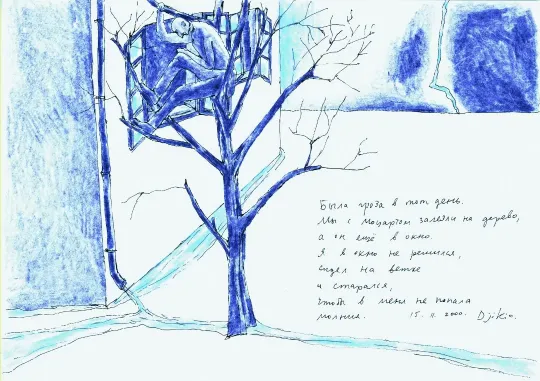 Была гроза в тот день.
Мы с Моцартом залезли на дерево,
а он ещё в окно.
Я в окно не решился,
сидел на ветке
и старался,
чтоб в меня не попала
молния. 15. II. 2000. Djikia.